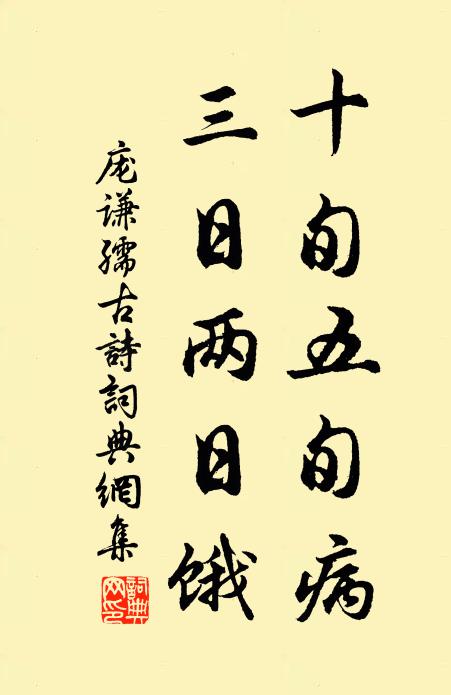 十旬五旬病
三日两日饿
庞谦孺古詩詞典網集
詞典網印